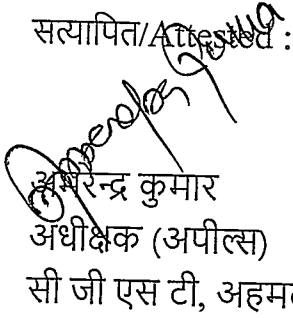 सत्यापित/Attested :
अमरेन्द्र कुमार
अधीक्षक (अपील्स)
सी जी एस टी,